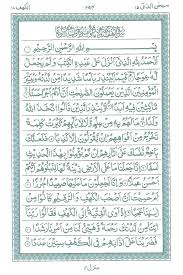 سبحن الذی ۱۵
الکهف ۱۸
بِسْمِ اللهِ الرَّحْمٰنِ الرَّحِيْمِ
اَلْحَمْدُ لِلّٰهِ الَّذِيْٓ اَنْزَلَ عَلٰى عَبْدِهِ الْكِتٰبَ وَلَمْ يَجْعَلْ
لَّهٗ عِوَجًا قَيِّمًا لِّيُنْذِرَ بَاْسًا شَدِيْدًا مِّنْ لَّدُنْهُ وَيُبَشِّرَ
الْمُؤْمِنِيْنَ الَّذِيْنَ يَعْمَلُوْنَ الصّٰلِحٰتِ اَنَّ لَهُمْ اَجْرًا حَسَنًا
مَّاكِثِيْنَ فِيْهِ اَبَدًا وَّيُنْذِرَ الَّذِيْنَ قَالُوا اتَّخَذَ اللهُ وَلَدًا
مَا لَهُمْ بِهٖ مِنْ عِلْمٍ وَّلَا لِاٰبَآئِهِمْ كَبُرَتْ كَلِمَةً
تَخْرُجُ مِنْ اَفْوَاهِهِمْ اِنْ يَّقُوْلُوْنَ اِلَّا كَذِبًا فَلَعَلَّكَ
بَاخِعٌ نَّفْسَكَ عَلٰٓى اٰثَارِهِمْ اِنْ لَّمْ يُؤْمِنُوْا بِهٰذَا الْحَدِيْثِ
اَسَفًا اِنَّا جَعَلْنَا مَا عَلَى الْاَرْضِ زِيْنَةً لَّهَا لِنَبْلُوَهُمْ اَيُّهُمْ
اَحْسَنُ عَمَلًا وَاِنَّا لَجٰعِلُوْنَ مَا عَلَيْهَا صَعِيْدًا جُرُزًا
اَمْ حَسِبْتَ اَنَّ اَصْحٰبَ الْكَهْفِ وَالرَّقِيْمِ كَانُوْا مِنْ
اٰيٰتِنَا عَجَبًا اِذْ اَوَى الْفِتْيَةُ اِلَى الْكَهْفِ فَقَالُوْا رَبَّنَآ
اٰتِنَا مِنْ لَّدُنْكَ رَحْمَةً وَّهَيِّئْ لَنَا مِنْ اَمْرِنَا رَشَدًا
فَضَرَبْنَا عَلٰٓى اٰذَانِهِمْ فِي الْكَهْفِ سِنِيْنَ عَدَدًا